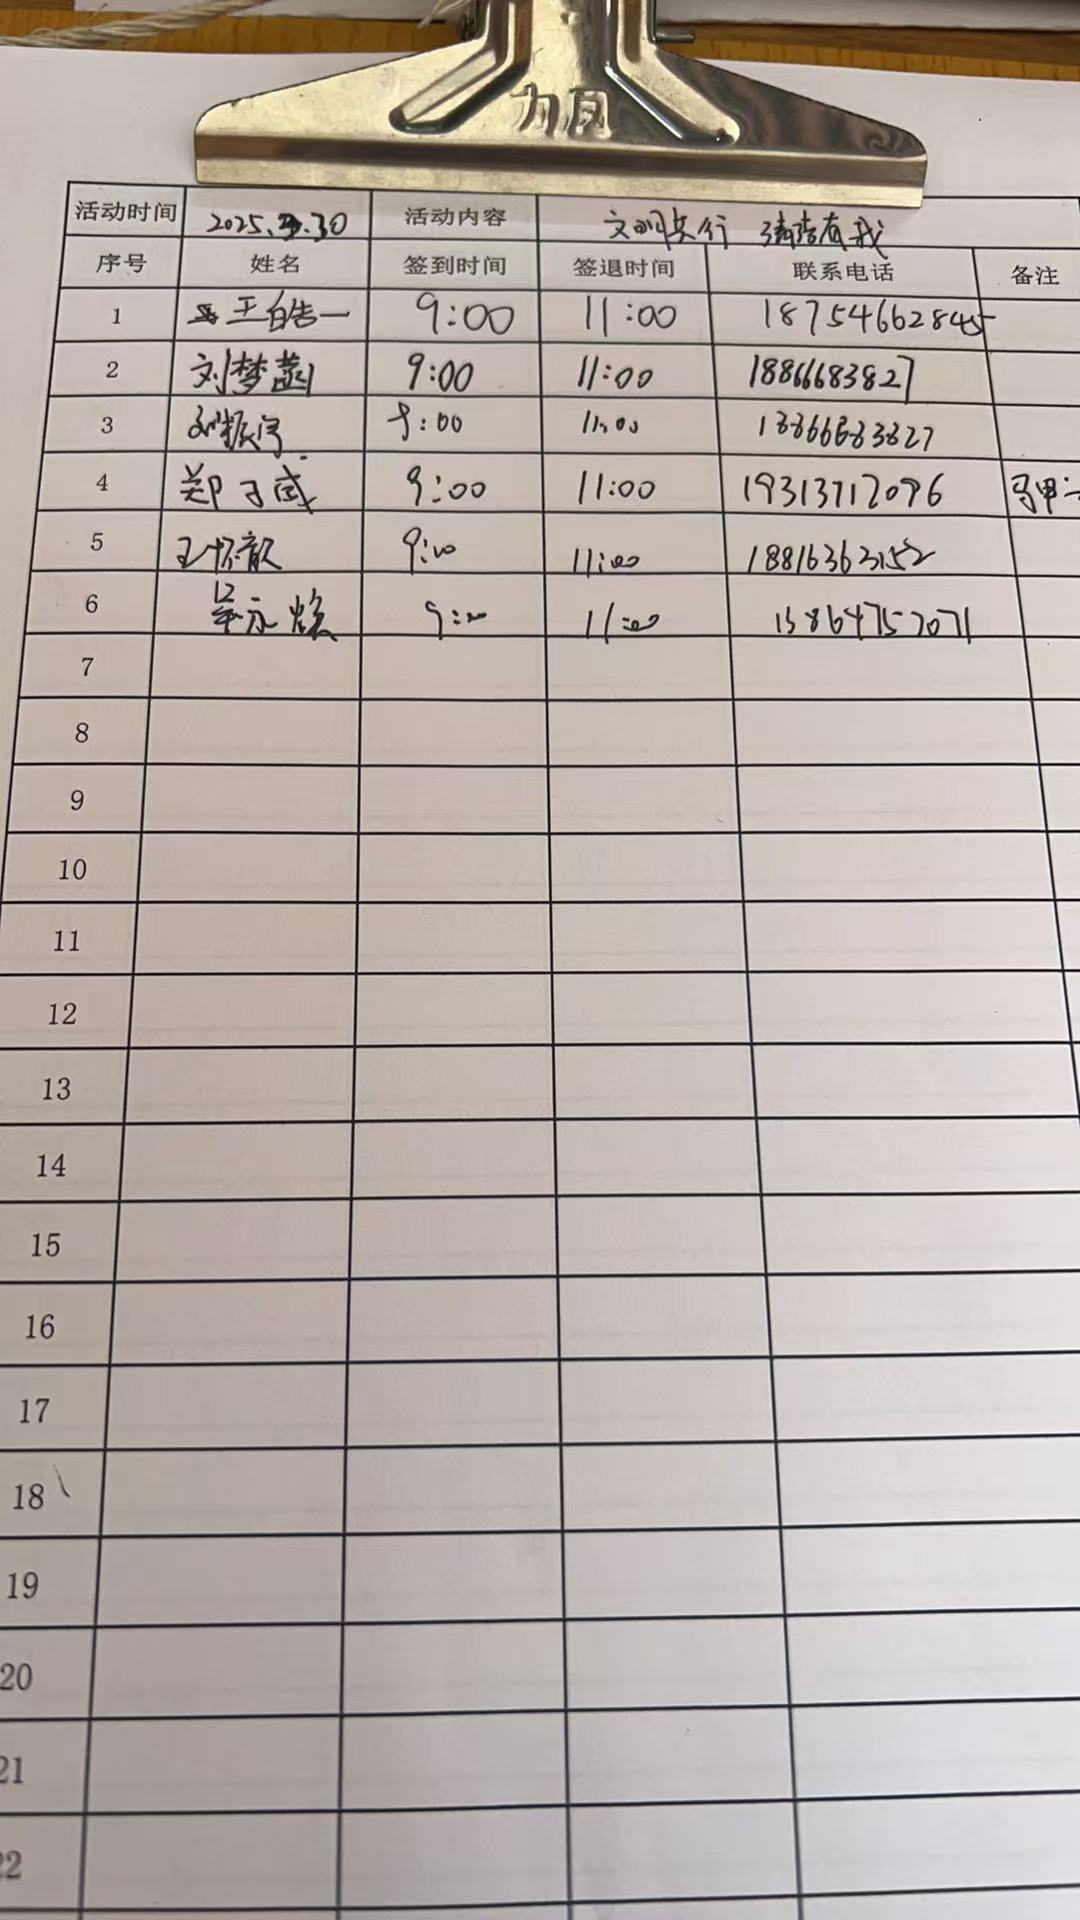 力风
活动时间 2025.3.30 活动内容 文明出行 清洁有我
序号 姓名 签到时间 签退时间 联系电话 备注
1 王皓一 9:00 11:00 18754662845
2 刘梦菡 9:00 11:00 18866683827
3 刘振宇 9:00 11:00 18866683827
4 郑子威 9:00 11:00 19313712096 马甲
5 王怀歆 9:00 11:00 18816363152
6 单永焕 9:00 11:00 15864757071
7
8
9
10
11
12
13
14
15
16
17
18
19
20
21
22